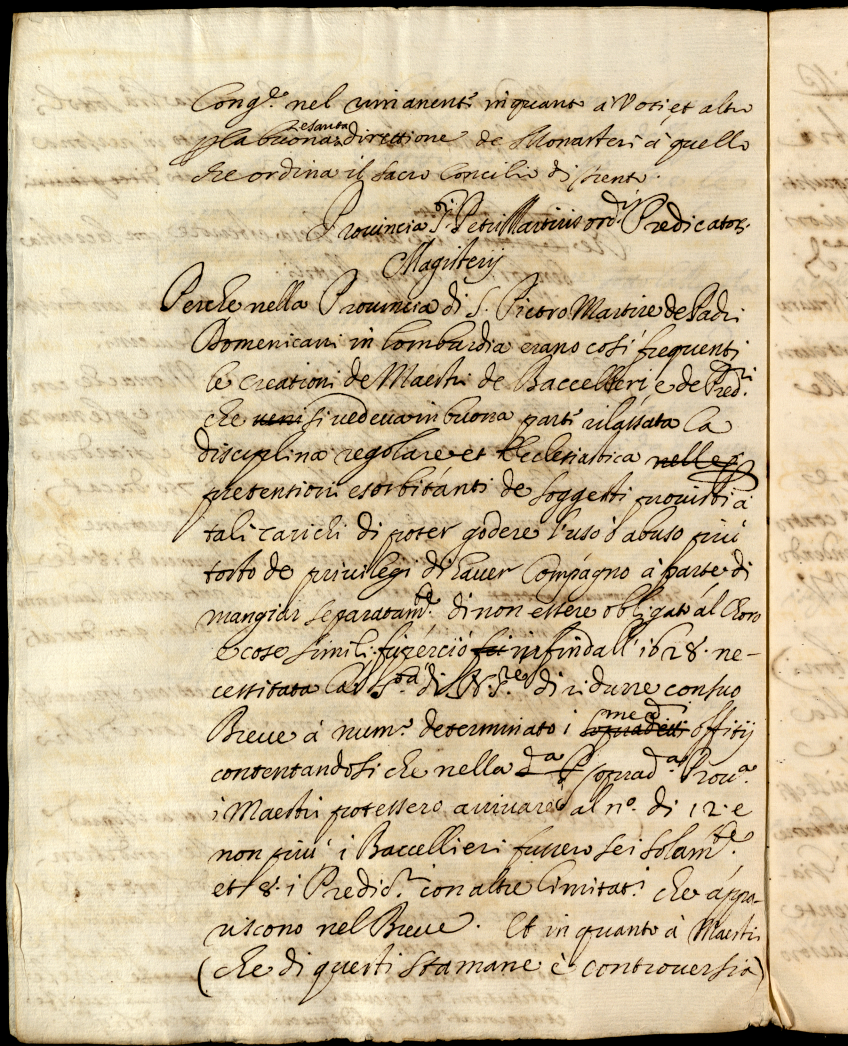 Cong.e nel rimanente in quanto à Voti, et altro
p la buona e santa direttione de Monasteri à quello
che ordina il sacro Concilio di Trento.
Provincia S.ti Petri Martiris ord.is Predicator.
Magisterij
Perche nella Provincia di S. Pietro Martire de Padri
Domenicani in lombardia erano cosi frequenti
le creationi de Maestri de Baccellieri, e de Pred.ri
che veni si vedeva in buona parte rilassata la
disciplina regolare et Ecclesiastica nelle p
pretentioni esorbitanti de soggetti provisti à
tali carichi di poter godere l'uso ò abuso più
tosto de privilegi di haver Compagno à parte di
mangiar separatam.te di non essere obligati al Choro
e cose simili, fù perciò fu infin dall' 1628. ne-
cessitata la S.tà di N. S.re di ridurre con suo
Breve à num.o determinato i sopradetti med.i offitij
contentandosi che nella d.a p soprad.a Prov.a
i Maestri potessero arrivare al n.o di 12. e
non più i Baccellieri fussero sei solam.te
et 8. i Predic.ri con altre limitat.i che appa-
riscono nel Breve. Et in quanto à Maestri
(che di questi stamane è controversia)